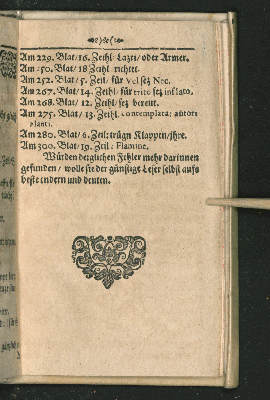 Am 229. Blat/ 16. Zeihl: Lazti/ oder Armer.
Am 250. Blat/ 18 Zeihl richtet.
Am 252. Blat/ 5. Zeil/ für Vel setz Nec.
Am 267. Blat/ 14. Zeihl/ für trito setz inflato.
Am 268. Blat/ 12. Zeihl/ setz bereitt.
Am 275. Blat/ 13. Zeihl. contemplata: autore
planti.
Am 280. Blat/ 6. Zeil: trägn Klappin/ ihre.
Am 300. Blat/ 19. Zeil: Flamme.
Würden dergleichen Fehler mehr darinnen
gefunden/ wolle sie der günstige Leser selbst aufs
beste endern und deuten.